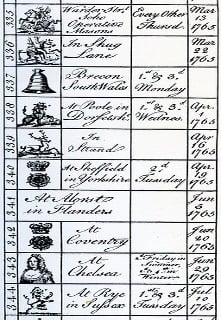 335 Wardor Str.t Soho Operative Masons Every Other Thursd. Mar 13 1765
336 In Shug Lane Mar 22 1765
337 Brecon South Wales 1st & 3d Monday
338 At Poole in Dorsetsh. 1st & 3d Wednes. Apr 1 1765
339 In Strand Apr 16 1765
340 At Sheffield Yorkshire 2d Tuesday Apr 19 1765
341 At Alost in Flanders Jun 5 1765
342 At Coventry Jun 20 1765
343 At Chelsea Jun 29 1765
344 At Rye in Sussex 1st & 3 Tuesday Jul 10 1765